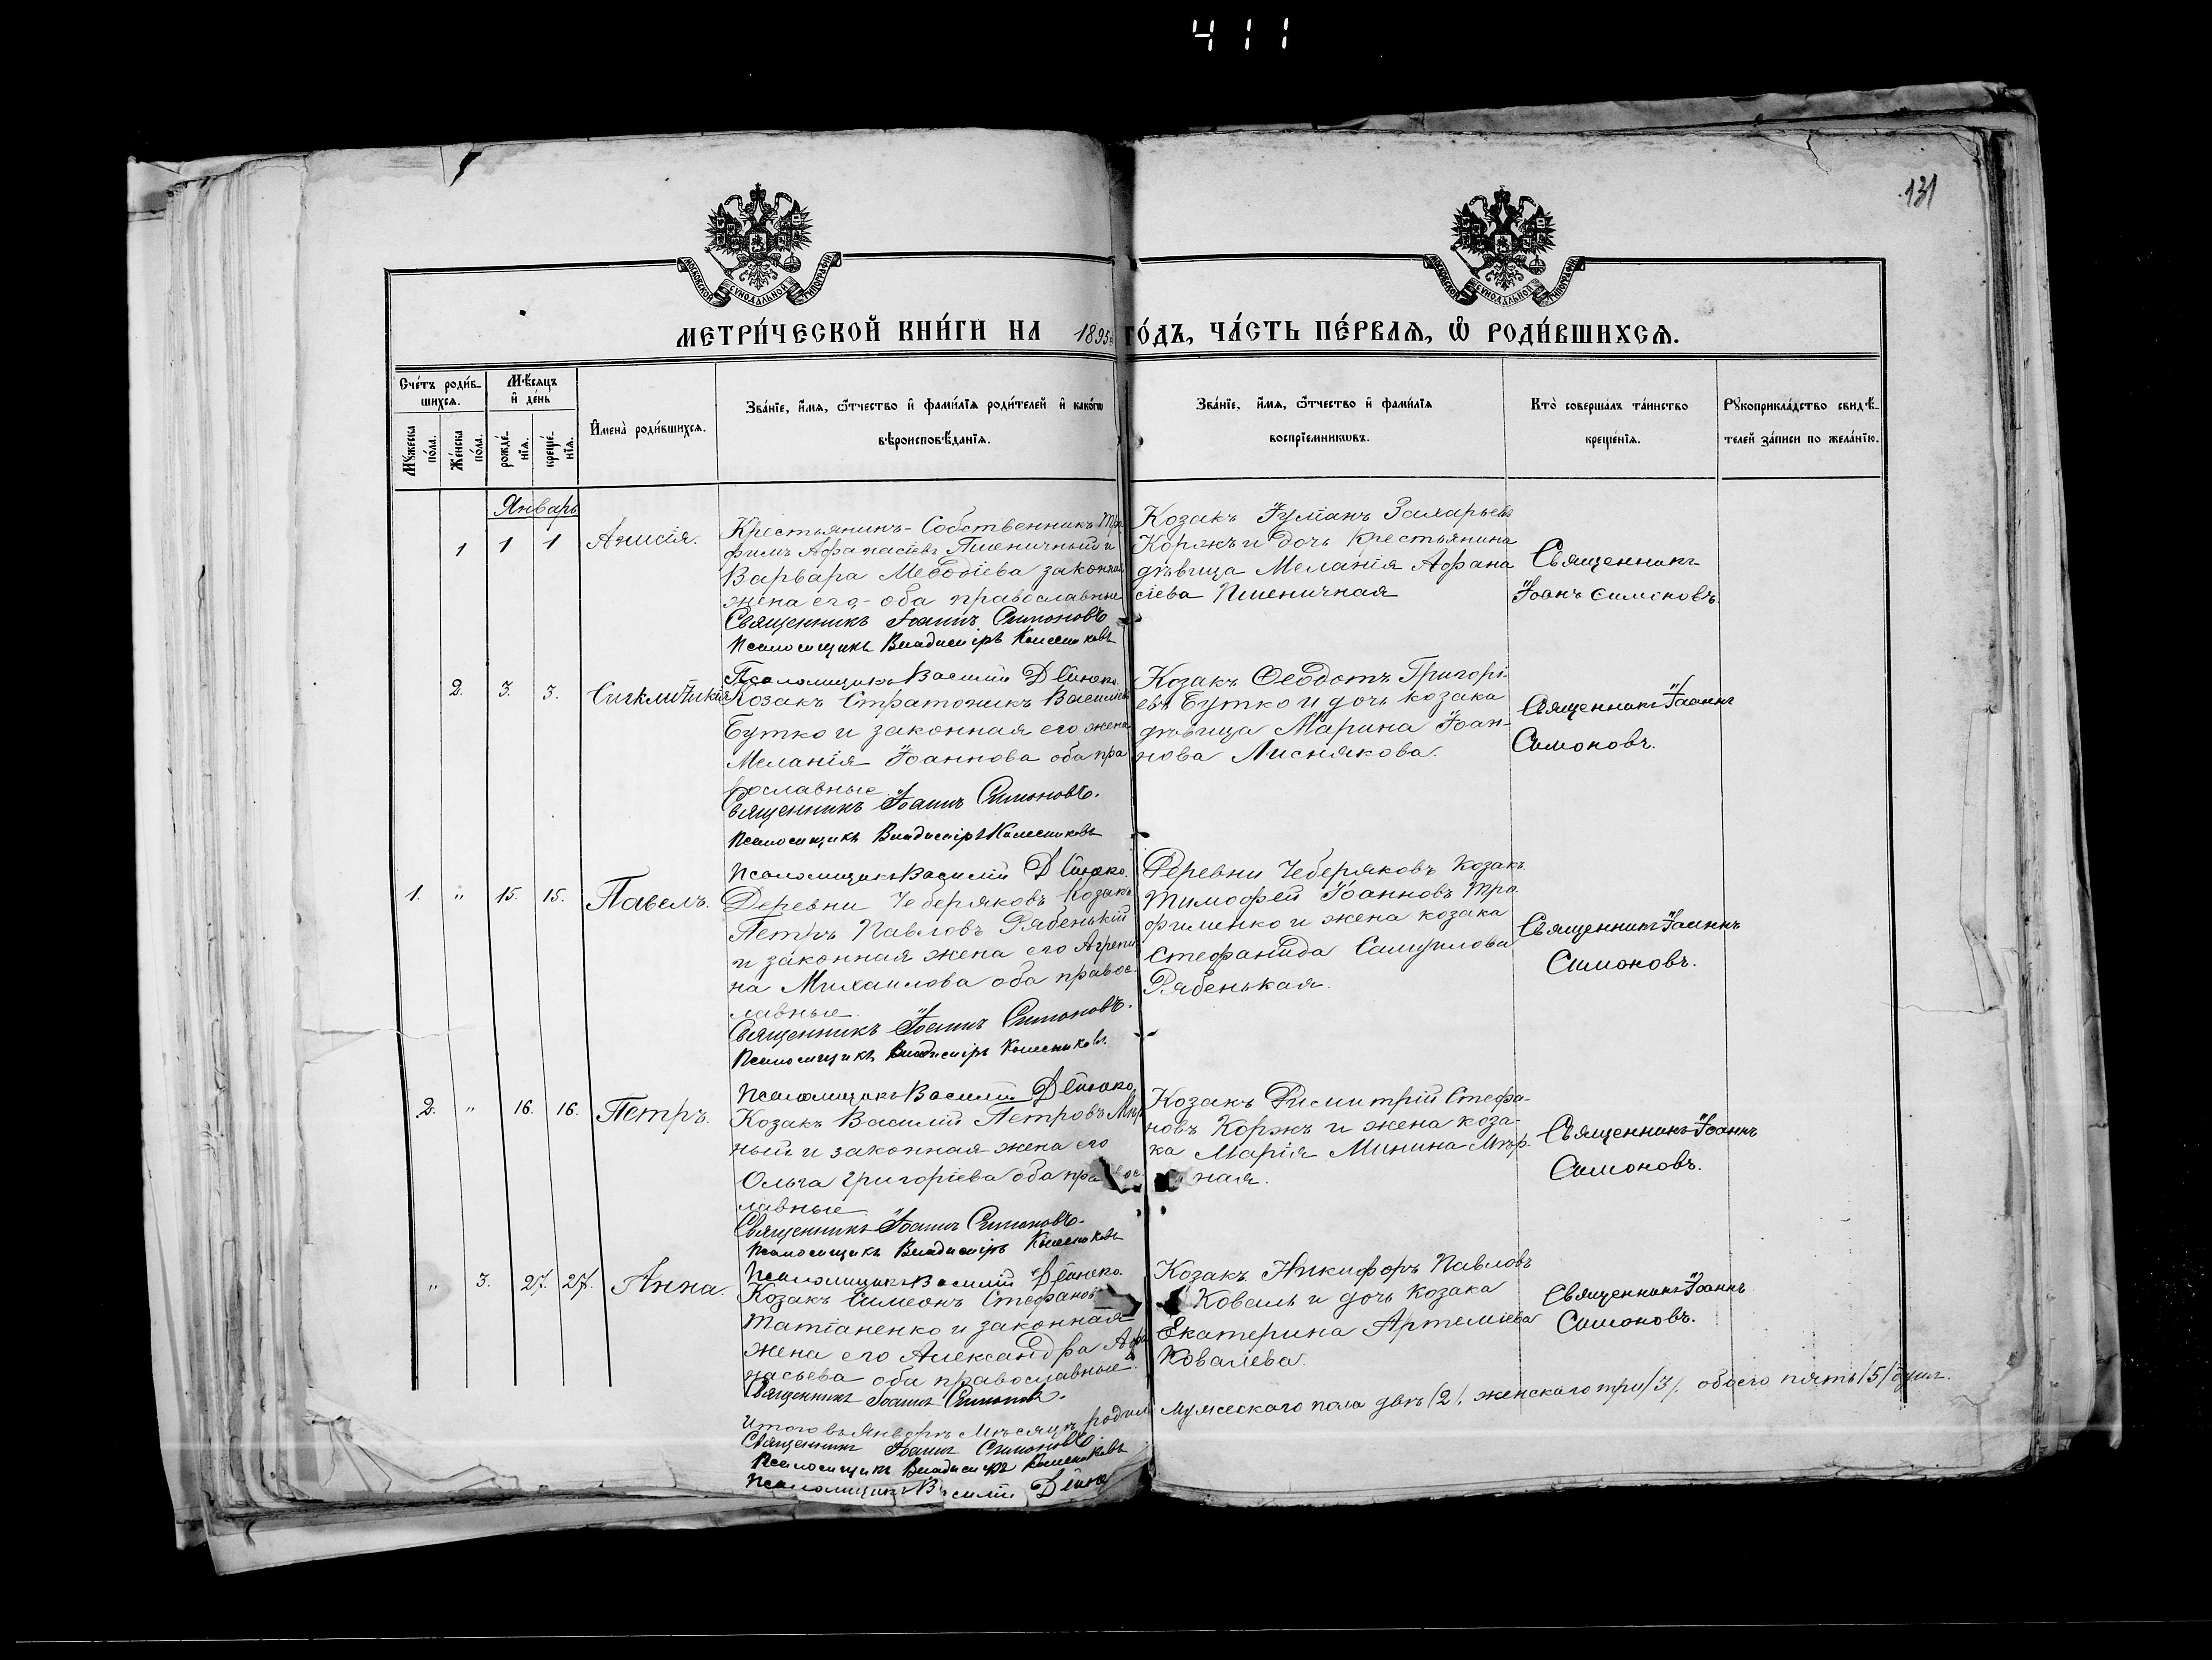 411
131
МОСКОВСКОЙ СѴНОДАЛЬНОЙ ТИПОГРАФІИ
МОСКОВСКОЙ СѴНОДАЛЬНОЙ ТИПОГРАФІИ
МЕТРИ́ЧЕСКОЙ КНИ́ГИ НА 1895 ГО́ДЪ, ЧА́СТЬ ПЕ́РВАѦ, Ѡ҆ РОДИ́ВШИХСѦ.
Сче́тъ роди́в-
шихсѧ.
Мѣ́сѧцъ
и҆ де́нь
И҆мена̀ роди́вшихсѧ.
Зва́нїе, и҆́мѧ, ѻ҆́тчество и҆ фами́лїѧ роди́телей и҆ како́гѡ
вѣроисповѣ́данїѧ.
Зва́нїе, и҆́мѧ, ѻ҆́тчество и҆ фами́лїѧ
воспрїемникѡвъ.
Кто̀ соверша́лъ та́инство
креще́нїѧ.
Рꙋкоприкла́дство свидѣ́-
телей за́писи по жела́нїю.
Мꙋ́жеска
по́ла.
Же́нска
по́ла.
рожде́-
нїѧ.
креще́-
нїѧ.
Январь
1 1 1 Анисія.
Крестьянинъ-Собственникъ Тро
фимъ Афанасіевъ Пшеничный и
Варвара Меѳодіева законная
жена его - оба православные
Священникъ Іоаннъ Симоновъ
Псаломщикъ Владиміръ Колесниковъ
Псаломщикъ Василій Дейнеко.
Козакъ Іуліанъ Захарьевъ
Коржъ и дочь крестьянина
дѣвица Меланія Афана
сіева Пшеничная
Священникъ
Іоаннъ Симоновъ.
2. 3. 3. Сигклитикія
Козакъ Стратоникъ Васильевъ
Бутко и законная его жена
Меланія Іоаннова оба пра
вославные
Священникъ Іоаннъ Симоновъ.
Псаломщикъ Владиміръ Колесниковъ
Псаломщикъ Василій Дейнеко.
Козакъ Ѳеодотъ Григорі-
евъ Бутко и дочь козака
дѣвица Марина Іоан-
нова Лиснякова.
Священникъ Іоаннъ
Симоновъ.
1. " 15. 15. Павелъ.
Деревни Чеберяковъ Козакъ
Петръ Павловъ Рябенькій
и законная жена его Агрепи
на Михаилова оба правос-
лавные
Священникъ Іоаннъ Симоновъ.
Псаломщикъ Владиміръ Колесниковъ
Псаломщикъ Василій Дейнеко
Деревни Чеберяковъ Козакъ
Тимофей Іоанновъ Тро
фименко и жена козака
Стефанида Самуилова
Рябенькая.
Священникъ Іоаннъ
Симоновъ.
2. " 16. 16. Петръ.
Козакъ Василій Петровъ Мир
ный и законная жена его
Ольга Григоріева оба правос
лавные
Священникъ Іоаннъ Симоновъ.
Псаломщикъ Владиміръ Колесниковъ
Псаломщикъ Василій Дейнеко.
Козакъ Димитрій Стефа-
новъ Коржъ и жена коза-
ка Марія Минина Мир-
ная.
Священникъ Іоаннъ
Симоновъ.
" 3. 27. 27. Анна.
Козакъ Симеонъ Стефановъ
Татіаненко и законная
жена его Александра Афа
насьева оба православные
Священникъ Іоаннъ Симоновъ.
Козакъ Никифоръ Павловъ
Коваль и дочь Козака
Екатерина Артеміева
Ковалева.
Священникъ Іоаннъ
Симоновъ.
Итого въ Январѣ Мѣсяцѣ родил Мужескаго пола двѣ /2/. женскаго три /3/. обоего пять /5/ душъ.
Священникъ Іоаннъ Симоновъ
Псаломщикъ Владиміръ Колесниковъ
Псаломщикъ Василій Дейнеко